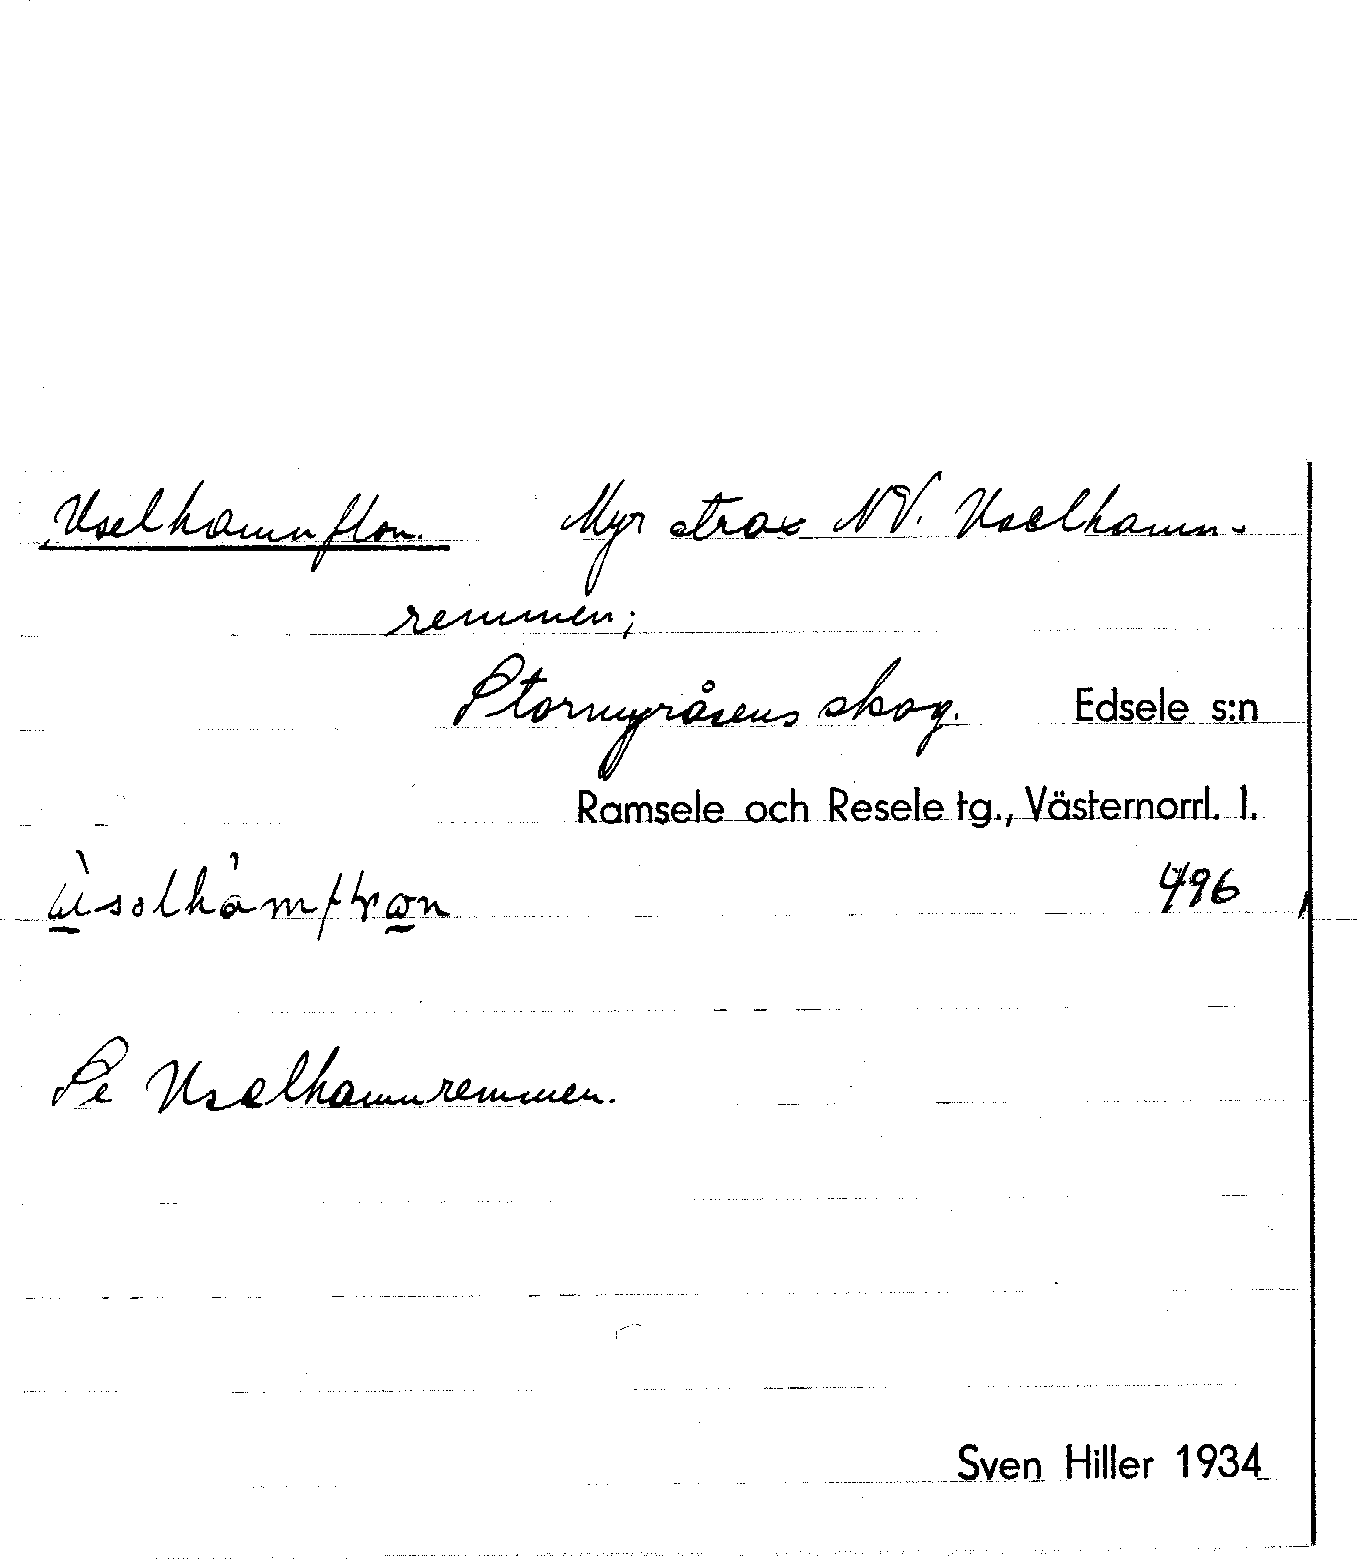 Uselhamnflon. Myr strax NV. Uselhamn-
remmen;
Stormyråsens skog. Edsele s:n
Ramsele och Resele tg., Västernorrl. l.
496
Se Uselhamnremmen.
Sven Hiller 1934